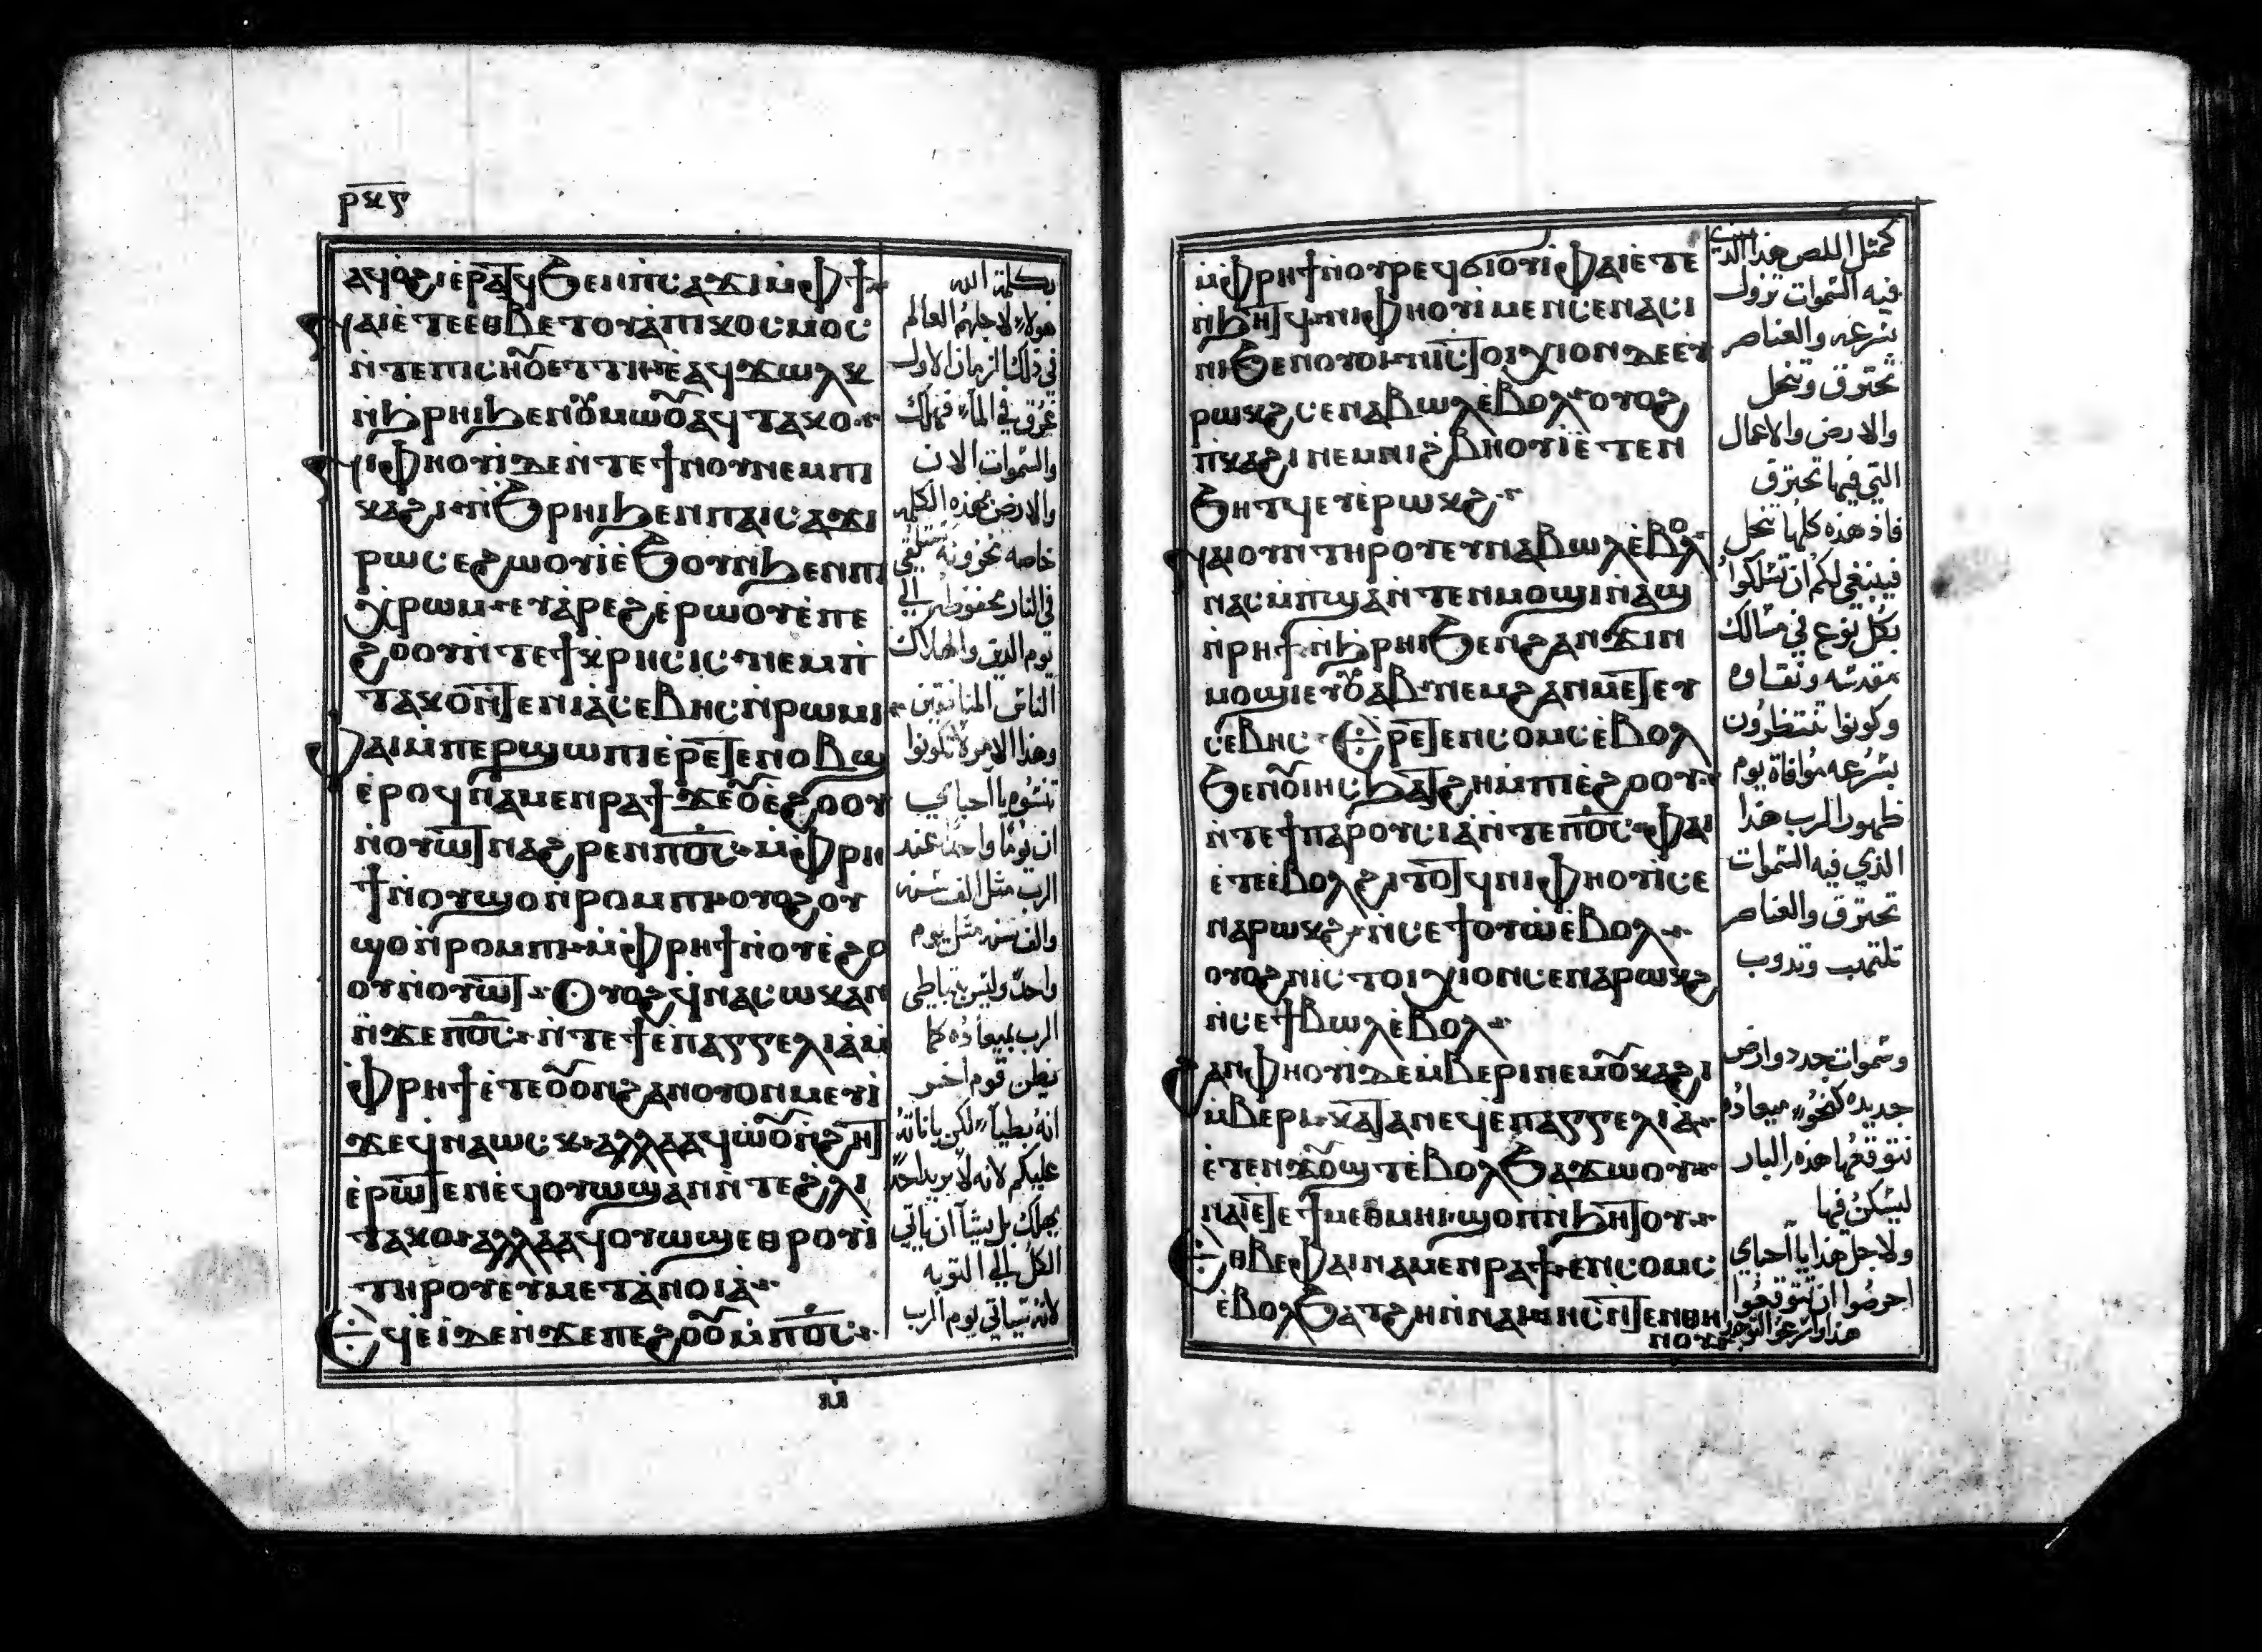 ⲣⲝⲋ
ⲁϥⲟϩⲓ ⲉⲣⲁⲧϥ ϧⲉⲛ ⲡⲥⲁϫⲓ ⲙ̀ⲫϯ
ⲫⲁⲓ ⲉⲧⲉ ⲉⲑⲃⲉⲧⲟⲩ ⲁ̀ ⲡⲓⲕⲟⲥⲙⲟⲥ
ⲛ̀ⲧⲉ ⲡⲓⲥⲛⲟⲩ ⲉⲧⲧⲏ ⲉ̀ⲁϥϫⲱⲗⲕ
ⲛ̀ϧⲣⲏⲓ ϧⲉⲛ ⲟⲩⲙⲱⲟⲩ ⲁϥⲧⲁⲕⲟ
ⲛⲓⲫⲏⲟⲩⲓ ⲇⲉ ⲛ̀ⲧⲉ ϯⲛⲟⲩ ⲛⲉⲙ ⲡⲓ
ⲕⲁϩⲓ ⲛ̀ϧⲣⲏⲓ ϧⲉⲛ ⲡⲁⲓⲥⲁϫⲓ
ⲣⲱ ⲥⲉϩⲱⲟⲩⲓ ⲉ̀ϧⲟⲩⲛ ϧⲉⲛ ⲡⲓ
ⲭⲣⲱⲙ ⲉⲩⲁ̀ⲣⲉϩ ⲉ̀ⲣⲱⲟⲩ ⲉ̀ⲡⲉ
ϩⲟⲟⲩ ⲛ̀ⲧⲉ ϯⲕⲣⲏⲥⲓⲥ ⲛⲉⲙ ⲡ̀
ⲧⲁⲕⲟ ⲛ̀ⲧⲉ ⲛⲓⲁ̀ⲥⲉⲃⲏⲥ ⲛ̀ⲣⲱⲙⲓ
ⲫⲁⲓ ⲙ̀ⲡⲉⲣϣⲱⲡⲓ ⲉ̀ⲣⲉⲧⲉⲛⲟⲃϣ
ⲉ̀ⲣⲟϥ ⲛⲁⲙⲉⲛⲣⲁϯ ϫⲉ ⲟⲩⲉ̀ϩⲟⲟⲩ
ⲛ̀ⲟⲩⲱⲧ ⲛⲁϩⲣⲉⲛ ⲡⲟ̅ⲥ̅ ⲙ̀ⲫⲣⲏ
ϯ ⲛ̀ⲟⲩϣⲟ ⲛ̀ⲣⲟⲙⲡⲓ ⲟⲩⲟϩ ⲟⲩ
ϣⲟ ⲛ̀ⲣⲟⲙⲡⲓ ⲙ̀ⲫⲣⲏϯ ⲛ̀ⲟⲩⲉ̀ϩⲟ
ⲟⲩ ⲛ̀ⲟⲩⲱⲧ Ⲟⲩⲟϩ ϥ̀ⲛⲁⲱⲥⲕ ⲁⲛ
ⲛ̀ϫⲉ ⲡⲟ̅ⲥ̅ ⲛ̀ⲧⲉ ϯⲉ̀ⲡⲁⲅⲅⲉⲗⲓⲁ̀ ⲙ̀
ⲫⲣⲏϯ ⲉ̀ⲧⲉ ⲟⲩⲟⲛ ϩⲁⲛⲟⲩⲟⲛ ⲙⲉⲩⲓ̀
ϫⲉ ϥ̀ⲛⲁⲱⲥⲕ ⲁⲗⲗⲁ ⲁϥⲱⲟⲩⲛ̀ϩⲏⲧ
ⲉ̀ⲣⲱⲧⲉⲛ ⲉ̀ϥⲟⲩⲱϣ ⲁⲛ ⲛ̀ⲧⲉ ϩ̀ⲗⲓ
ⲧⲁⲕⲟ ⲁⲗⲗⲁ ⲁϥⲟⲩⲱϣ ⲉⲑⲣⲟⲩⲓ̀
ⲧⲏⲣⲟⲩ ⲉⲩⲙⲉⲧⲁ̀ⲛⲟⲓⲁ̀
Ⲉϥⲉ̀ⲓ ⲇⲉ ⲛ̀ϫⲉ ⲡⲉϩⲟⲟⲩ ⲙ̀ⲡⲟ̅ⲥ̅
ⲙ̀
بكلمة الله
هولاء لاجلهم العالم
في ذلك الزمان الاول
غرق في الماء فهلك
والسموات الان
والارض بهذه الكلمه
خاصه مخزونه تستلقي
في النار محفوظه الي
يوم الدين والهلاك
الناس المنافقين
وهذا الامر لا تكونوا
تنسوه يا احباي
ان يوما واحدا عند
الرب مثل الف سنه
والف سنه مثل يوم
واحد وليس يتباطي
الرب بميعاده كما
يظن قوم اخر
انه بطيا لكن باناته
عليكم لانه لا يريد احد
يهلك بل يشا ان ياتي
الكل الي التوبه
لانه سياتي يوم الرب
ⲙ̀ⲫⲣⲏϯ ⲛ̀ⲟⲩⲣⲉϥϭⲓⲟⲩⲓ̀ ⲫⲁⲓ ⲉ̀ⲧⲉ
ⲛ̀ϧⲏⲧϥ ⲛⲓⲫⲏⲟⲩⲓ̀ ⲙⲉⲛ ⲥⲉⲛⲁⲥⲓ
ⲛⲓ ϧⲉⲛ ⲟⲩⲟⲓ ⲛⲓⲥⲧⲟⲓⲭⲓⲟⲛ ⲇⲉ ⲉⲩ
ⲣⲱⲕϩ ⲥⲉⲛⲁⲃⲱⲗ ⲉ̀ⲃⲟⲗ ⲟⲩⲟϩ
ⲡ̀ⲕⲁϩⲓ ⲛⲉⲙ ⲛⲓϩ̀ⲃⲏⲟⲩⲓ̀ ⲉ̀ⲧⲉ ⲛ̀
ϧⲏⲧϥ ⲉⲩⲉ̀ⲣⲱⲕϩ
ⲛⲁⲓ ⲟⲩⲛ ⲧⲏⲣⲟⲩ ⲉⲩⲛⲁⲃⲱⲗ ⲉ̀ⲃⲟⲗ
ⲛⲁⲥⲙ̀ⲡϣⲁ ⲛ̀ⲧⲉⲛⲙⲟϣⲓ ⲛ̀ⲁϣ
ⲛ̀ⲣⲏϯ ⲛ̀ϧⲣⲏⲓ ϧⲉⲛ ϩⲁⲛϫⲓⲛ
ⲙⲟϣⲓ ⲉⲩⲟⲩⲁⲃ ⲛⲉⲙ ϩⲁⲛⲙⲉⲧⲉⲩ
ⲥⲉⲃⲏⲥ Ⲉⲣⲉⲧⲉⲛⲥⲟⲙⲥ ⲉ̀ⲃⲟⲗ
ϧⲉⲛ ⲟⲩⲓⲏⲥ ϧⲁⲧϩⲏ ⲙ̀ⲡⲓⲉ̀ϩⲟⲟⲩ
ⲛ̀ⲧⲉ ϯⲡⲁⲣⲟⲩⲥⲓⲁ̀ ⲛ̀ⲧⲉ ⲡⲟ̅ⲥ̅ ⲫⲁⲓ
ⲉ̀ⲧⲉ ⲉ̀ⲃⲟⲗ ϩⲓⲧⲟⲧϥ ⲛⲓⲫⲏⲟⲩⲓ̀ ⲥⲉ
ⲛⲁⲣⲱⲕϩ ⲛ̀ⲥⲉϯⲟⲩⲱ ⲉ̀ⲃⲟⲗ
ⲟⲩⲟϩ ⲛⲓⲥⲧⲟⲓⲭⲓⲟⲛ ⲥⲉⲛⲁⲣⲱⲕϩ
ⲛ̀ⲥⲉϯⲃⲱⲗ ⲉ̀ⲃⲟⲗ
ϩⲁⲛⲫⲏⲟⲩⲓ̀ ⲇⲉ ⲙ̀ⲃⲉⲣⲓ ⲛⲉⲙ ⲟⲩⲕⲁϩⲓ
ⲙ̀ⲃⲉⲣⲓ ⲕⲁⲧⲁ ⲛⲉϥⲉ̀ⲡⲁⲅⲅⲉⲗⲓⲁ̀
ⲉ̀ⲧⲉⲛϫⲟⲩϣⲧ ⲉ̀ⲃⲟⲗ ϧⲁϫⲱⲟⲩ
ⲛⲁⲓ ⲉⲧⲉ ϯⲙⲉⲑⲙⲏⲓ ϣⲟⲡ ⲛ̀ϧⲏⲧⲟⲩ
Ⲉⲑⲃⲉ ⲫⲁⲓ ⲛⲁⲙⲉⲛⲣⲁϯ ⲉⲛⲥⲟⲙⲥ
ⲉ̀ⲃⲟⲗ ϧⲁⲧϩⲏ ⲛ̀ⲛⲁⲓ ⲓⲏⲥ ⲛ̀ⲧⲉⲛⲑⲏ
ⲛⲟⲩ
كمثل اللص هذا الذي
فيه السموات تزول
بسرعه والعناصر
تحترق وتنحل
والارض والاعمال
التي فيها تحترق
فاذ هذه كلها تنحل
فينبغي لكم ان تسلكوا
بكل نوع في مسالك
مقدسه ونقاوه
وكونوا تنتظرون
بسرعه موافاة يوم
ظهور الرب هذا
الذي فيه السموات
تحترق والعناصر
تلتهب وتدوب
وسموات جدد وارض
جديده كنحو ميعاده
نتوقعها هذه البار
ليسكن فيها
ولاجل هذا يا احباي
احرصوا ان تتوقعوا